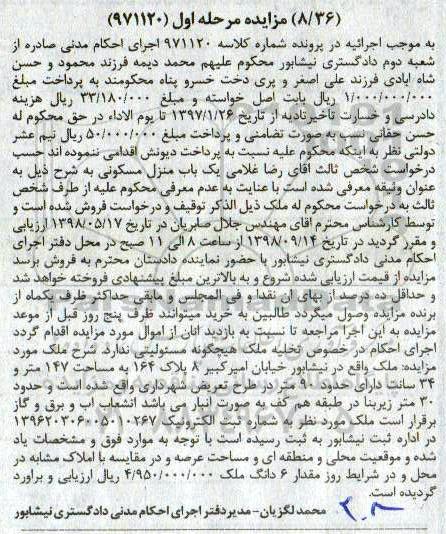 (۸/۳۶) مزایده مرحله اول (۹۷۱۱۲۰)
به موجب اجرائیه در پرونده شماره کلاسه ۹۷۱۱۲۰ اجرای احکام مدنی صادره از
شعبه دوم دادگستری نیشابور محکوم علیهم محمد دیمه فرزند محمود و حسن
شاه ابادی فرزند علی اصغر و پری دخت خسرو پناه محکومند به پرداخت مبلغ
۱/۰۰۰/۰۰۰/۰۰۰ ریال بابت اصل خواسته و مبلغ ۳۳/۱۸۰/۰۰۰ ریال هزینه
دادرسی و خسارت تأخیرتادیه از تاریخ ۱۳۹۷/۱/۲۶ تا یوم الاداء در حق محکوم له
حسن حقانی نسب به صورت تضامنی و پرداخت مبلغ ۵۰/۰۰۰/۰۰۰ ریال نیم عشر
دولتی نظر به اینکه محکوم علیه نسبت به پرداخت دیونش اقدامی ننموده اند حسب
درخواست شخص ثالث اقای رضا غلامی یک باب منزل مسکونی به شرح ذیل به
عنوان وثیقه معرفی شده است با عنایت به عدم معرفی محکوم علیه از طرف شخص
ثالث به درخواست محکوم له ملک ذیل الذکر توقیف و درخواست فروش شده است و
توسط کارشناس محترم اقای مهندس جلال صابریان در تاریخ ۱۳۹۸/۰۵/۱۷ ارزیابی
و مقرر گردید در تاریخ ۱۳۹۸/۰۹/۱۴ از ساعت ۸ الی ۱۱ صبح در محل دفتر اجرای
احکام مدنی دادگستری نیشابور با حضور نماینده دادستان محترم به فروش برسد
مزایده از قیمت ارزیابی شده شروع و به بالاترین مبلغ پیشنهادی فروخته خواهد شد
و حداقل ده درصد از بهای ان نقدا و فی المجلس و مابقی حداکثر ظرف یکماه از
برنده مزایده وصول میگردد طالبین به خرید میتوانند ظرف پنج روز قبل از موعد
مزایده به این اجرا مراجعه تا نسبت به بازدید اتان از اموال مورد مزایده اقدام گردد
اجرای احکام در خصوص تخلیه ملک هیچگونه مسئولیتی ندارد. شرح ملک مورد
مزایده: ملک واقع در نیشابور خیابان امیرکبیر ۸ پلاک ۱۶۴ به مساحت ۱۴۷ متر و
۳۴ سانت دارای حدود ۹۰ متر در طرح تعریض شهرداری واقع شده است و حدود
۳۰ متر زیربنا در طبقه هم کف به صورت انبار می باشد انشعاب اب و برق و گاز
برقرار است ملک مورد نظر با شماره ثبت الکترونیک ۱۳۹۶۲۰۳۰۶۰۰۵۰۱۰۲۶۷
در اداره ثبت نیشابور به ثبت رسیده است با توجه به موارد فوق و مشخصات یاد
شده و موقعیت محلی و منطقه ای و مساحت عرصه و در مقایسه با املاک مشابه در
محل و در شرایط روز مقدار ۶ دانگ ملک ۴/۹۵۰/۰۰۰/۰۰۰ ریال ارزیابی و براورد
گردیده است.
محمد لگزیان- مدیردفتر اجرای احکام مدنی دادگستری نیشابور